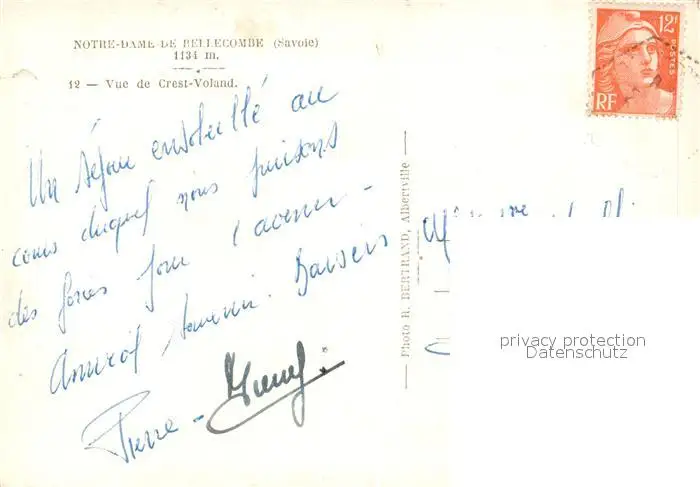 NOTRE-DAME-DE BELLECOMBE (Savoie)
1134 m.
12 — Vue de Crest-Voland.
12F
POSTES
RF
Un séjour ensoleillé au
cours duquel nous puisons
des forces pour l'avenir -
Amical souvenir. Baisers
Pierre -
Photo R. BERTRAND, Albertville
privacy protection
Datenschutz